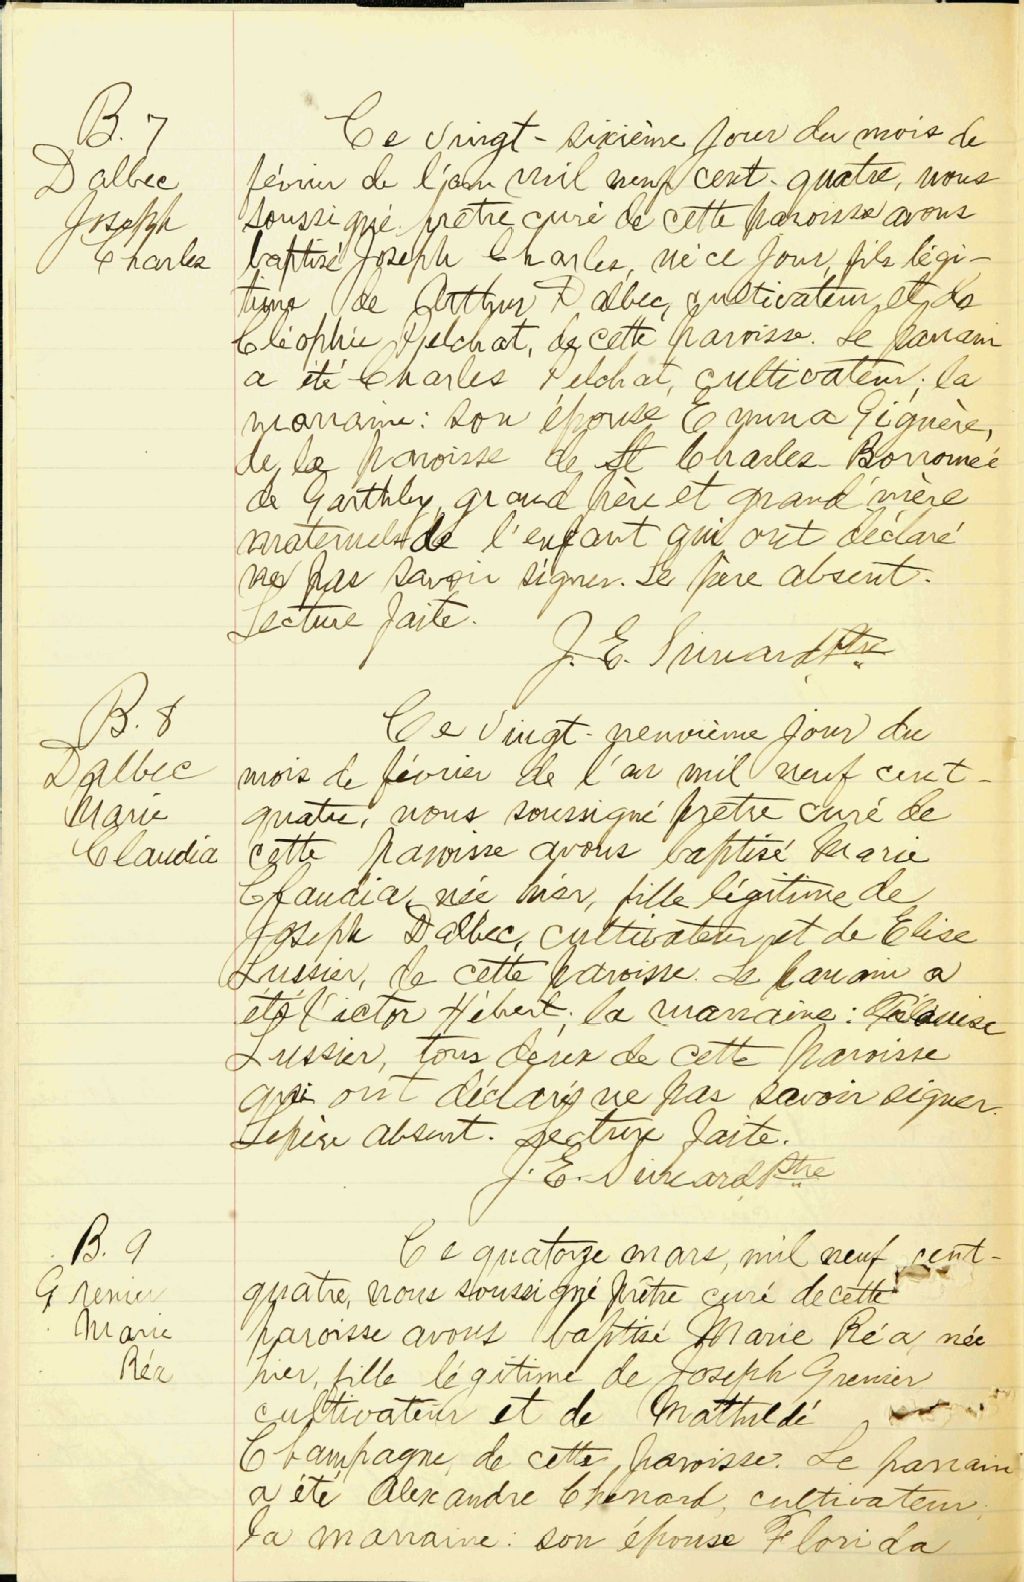 B. 7
Dalbec
Joseph
Charles
Ce vingt-sixième jour du mois de
février de l'an mil neuf cent-quatre, nous
soussigné prêtre curé de cette paroisse avons
baptisé Joseph Charles, né ce jour, fils légi-
time de Arthur Dalbec, cultivateur et de
Cléophie Pelchat, de cette paroisse. Le parrain
a été Charles Pelchat, cultivateur; la
marraine: son épouse Emma Giguère,
de la paroisse de St Charles-Borromée
de Garthby, grand père et grand'mère
maternels de l'enfant qui ont déclaré
ne pas savoir signer. Le père absent.
Lecture faite.
J. E. Simard Ptre
B. 8
Dalbec
Marie
Claudia
Ce vingt-neuvième jour du
mois de février de l'an mil neuf cent-
quatre, nous soussigné prêtre curé de
cette paroisse avons baptisé Marie
Claudia, née hier, fille légitime de
Joseph Dalbec, cultivateur et de Elise
Lussier, de cette paroisse. Le parrain a
été Victor Hébert; la marraine:
Lussier, tous deux de cette paroisse
qui ont déclaré ne pas savoir signer.
Le père absent. Lecture faite.
J. E. Simard Ptre
B. 9
Grenier
Marie
Réa
Ce quatorze mars, mil neuf cent-
quatre, nous soussigné prêtre curé de cette
paroisse avons baptisé Marie Réa, née
hier, fille légitime de Joseph Grenier
cultivateur et de Mathildé
Champagne, de cette paroisse. Le parrain
a été Alexandre Chenard, cultivateur;
la marraine: son épouse Florida